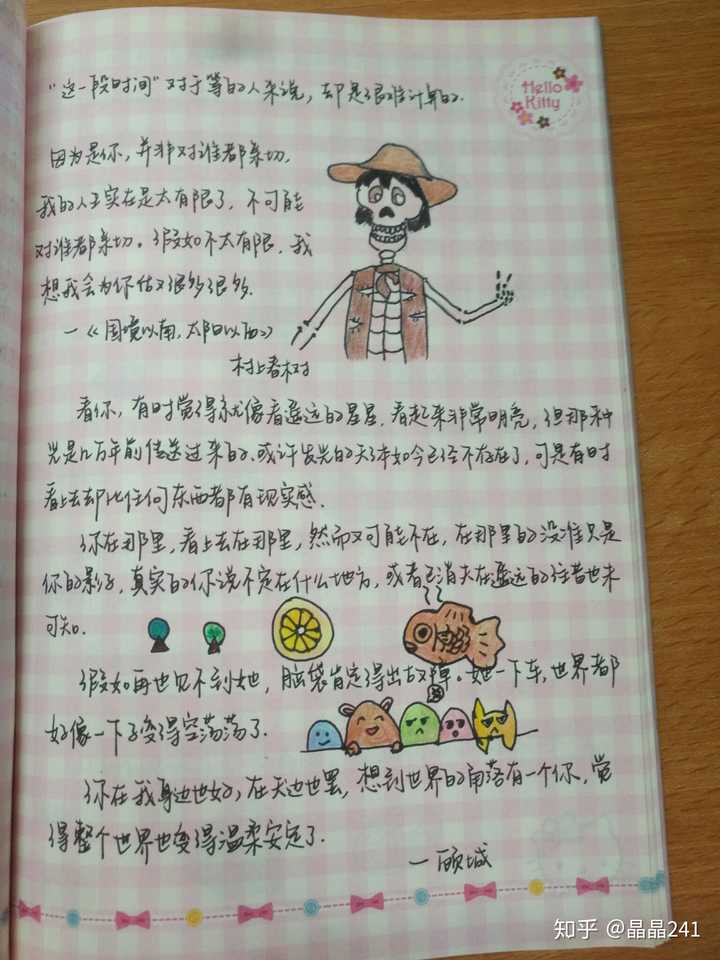 "这一段时间"对于等的人来说，却是很难计算的.
Hello
Kitty
因为是你，并非对谁都亲切.
我的人生实在是太有限了，不可能
对谁都亲切。假如不太有限，我
想我会为你做很多很多.
—《国境以南，太阳以西》
村上春树
看你，有时觉得就像看遥远的星星，看起来非常明亮，但那种
光是几万年前传送过来的.或许发光的天体如今已经不存在了，可是有时
看上去却比任何东西都有现实感.
你在那里，看上去在那里，然而又可能不在，在那里的没准只是
你的影子，真实的你说不定在什么地方，或者已消失在遥远的往昔也未
可知.
假如再也见不到她，脑袋肯定得出故障。她一下车，世界都
好像一下子变得空荡荡了.
你在我身边也好，在天边也罢，想到世界的角落有一个你，觉
得整个世界也变得温柔安定了.
—顾城
知乎 @晶晶241